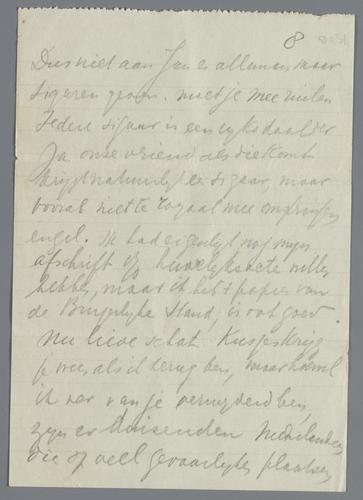 8
Dus niet aan Jan en alleman maar
sigaren geven. moet je mee ruilen
Iedere sigaar is een rijksdaalder
Ja onze vriend als die komt
krijgt natuurlijk een sigaar, maar
vooral niet te royaal mee omspringen
engel. Ik had eigenlijk nog mijn
afschrift v/d huwelijksacte willen
hebben, maar ik heb 't papier van
de Burgerlijke Stand, is ook goed.
Nu lieve schat. Kusjes krijg
je weer als ik terug ben, maar hoewel
ik ver van je verwijderd ben,
zijn er duizenden Nederlanders
die op veel gevaarlijker plaatsen